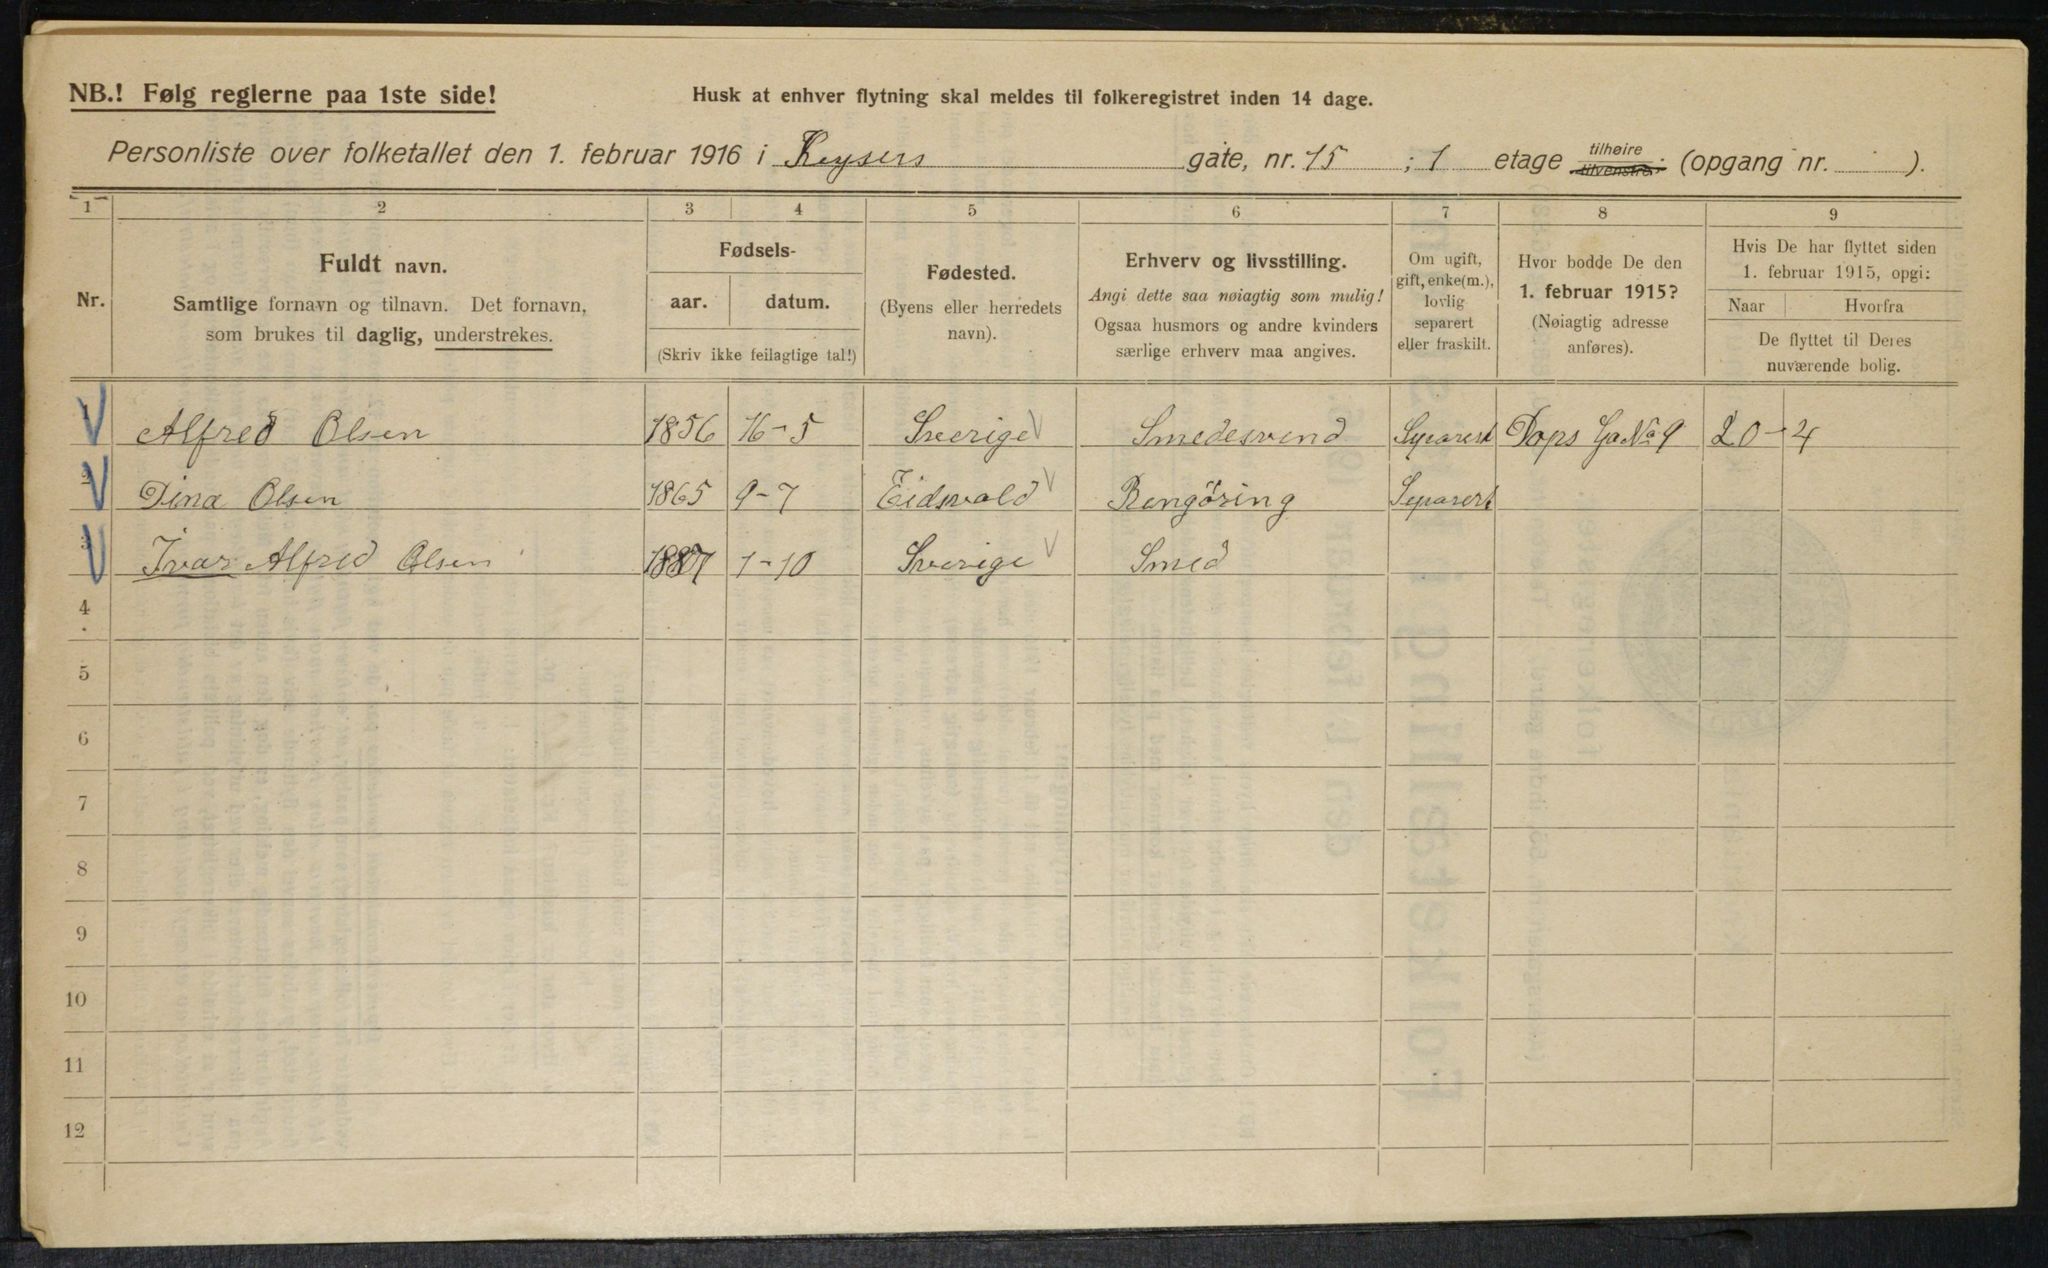 NB.! Følg reglerne paa 1ste side!
Husk at enhver flytning skal meldes til folkeregistret inden 14 dage.
Personliste over folketallet den 1. februar 1916 i Keysers gate, nr. 15 ; 1 etage tilhøire tilvenstre. (opgang nr. ).
1 2 3 4 5 6 7 8 9
Nr.
Fuldt navn.
Samtlige fornavn og tilnavn. Det fornavn,
som brukes til daglig, understrekes.
Fødsels-
aar. datum.
(Skriv ikke feilagtige tal!)
Fødested.
(Byens eller herredets
navn).
Erhverv og livsstilling.
Angi dette saa nøiagtig som mulig!
Ogsaa husmors og andre kvinders
særlige erhverv maa angives.
Om ugift,
gift, enke(m.),
lovlig
separert
eller fraskilt.
Hvor bodde De den
1. februar 1915?
(Nøiagtig adresse
anføres).
Hvis De har flyttet siden
1. februar 1915, opgi:
Naar Hvorfra
De flyttet til Deres
nuværende bolig.
1 Alfred Olsen 1856 16-5 Sverige Smedesvend Separert Dops Ga No 9 20-4
2 Dina Olsen 1865 9-7 Eidsvold Rengöring Separert
3 Ivar Alfred Olsen 1887 1-10 Sverige Smed
4
5
6
7
8
9
10
11
12